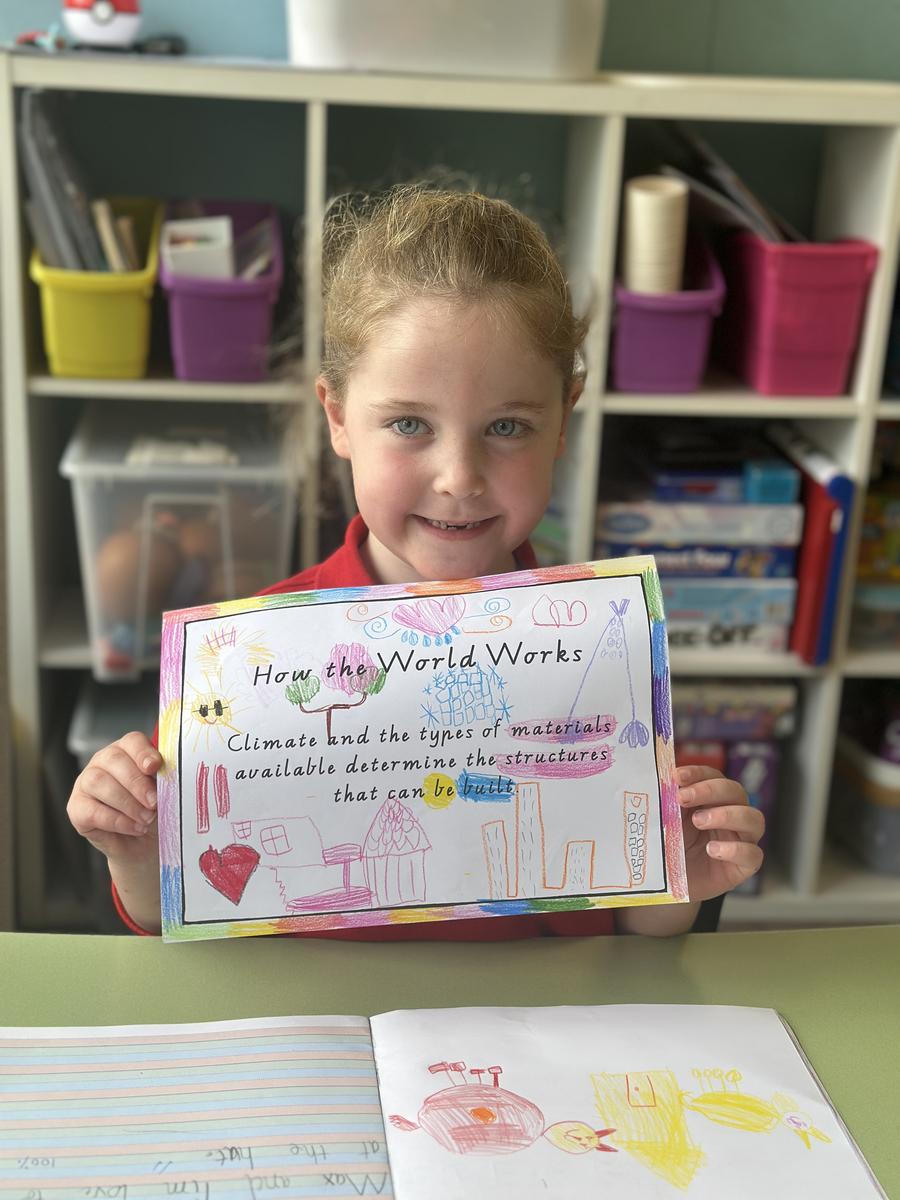 How the World Works
Climate and the types of materials
available determine the structures
that can be built
at the hat. 100%
Max and I'm love to